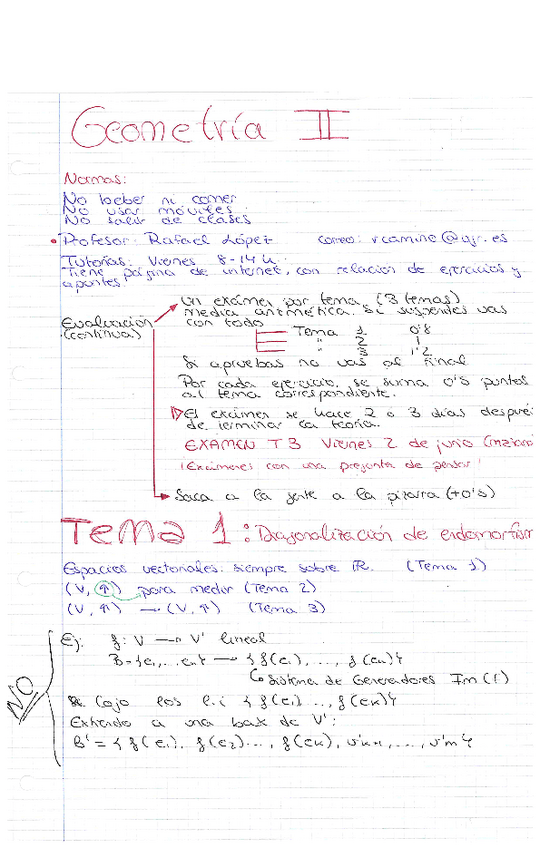 Geometría II
Normas:
No beber ni comer
No usar móviles
No salir de clases
• Profesor: Rafael López correo: rcamino@ugr.es
Tutorías: Viernes 8-14 h.
Tiene página de internet, con relación de ejercicios y
apuntes.
Evaluación
(continua)
Un exámen por tema, (3 temas)
media aritmética. Si suspendes vas
con todo
Tema 1 0'8
" 2 1
" 3 1'2
Si apruebas no vas al final
Por cada ejercicio, se suma 0'5 puntos
al tema correspondiente.
El exámen se hace 2 o 3 días despué
de terminar la teoría.
EXAMEN T3 Viernes 2 de junio
¡Exámenes con una pregunta de pensar!
Saca a la gente a la pizarra (+0'5)
TEMA 1: Diagonalización de endomorfism
Espacios vectoriales: siempre sobre ℝ. (Tema 1)
(V, ↑) para medir (Tema 2)
(V, ↑) → (V, ↑) (Tema 3)
NO
Ej: f: V → V' lineal
B={e₁,...eₙ} → {f(e₁), ..., f(eₙ)}
Sistema de Generadores Im(f)
Cojo los l.i {f(e₁)..., f(eₖ)}
Extiendo a una base de V':
B' = {f(e₁), f(e₂)..., f(eₖ), v'ₖ₊₁, ..., v'ₘ}